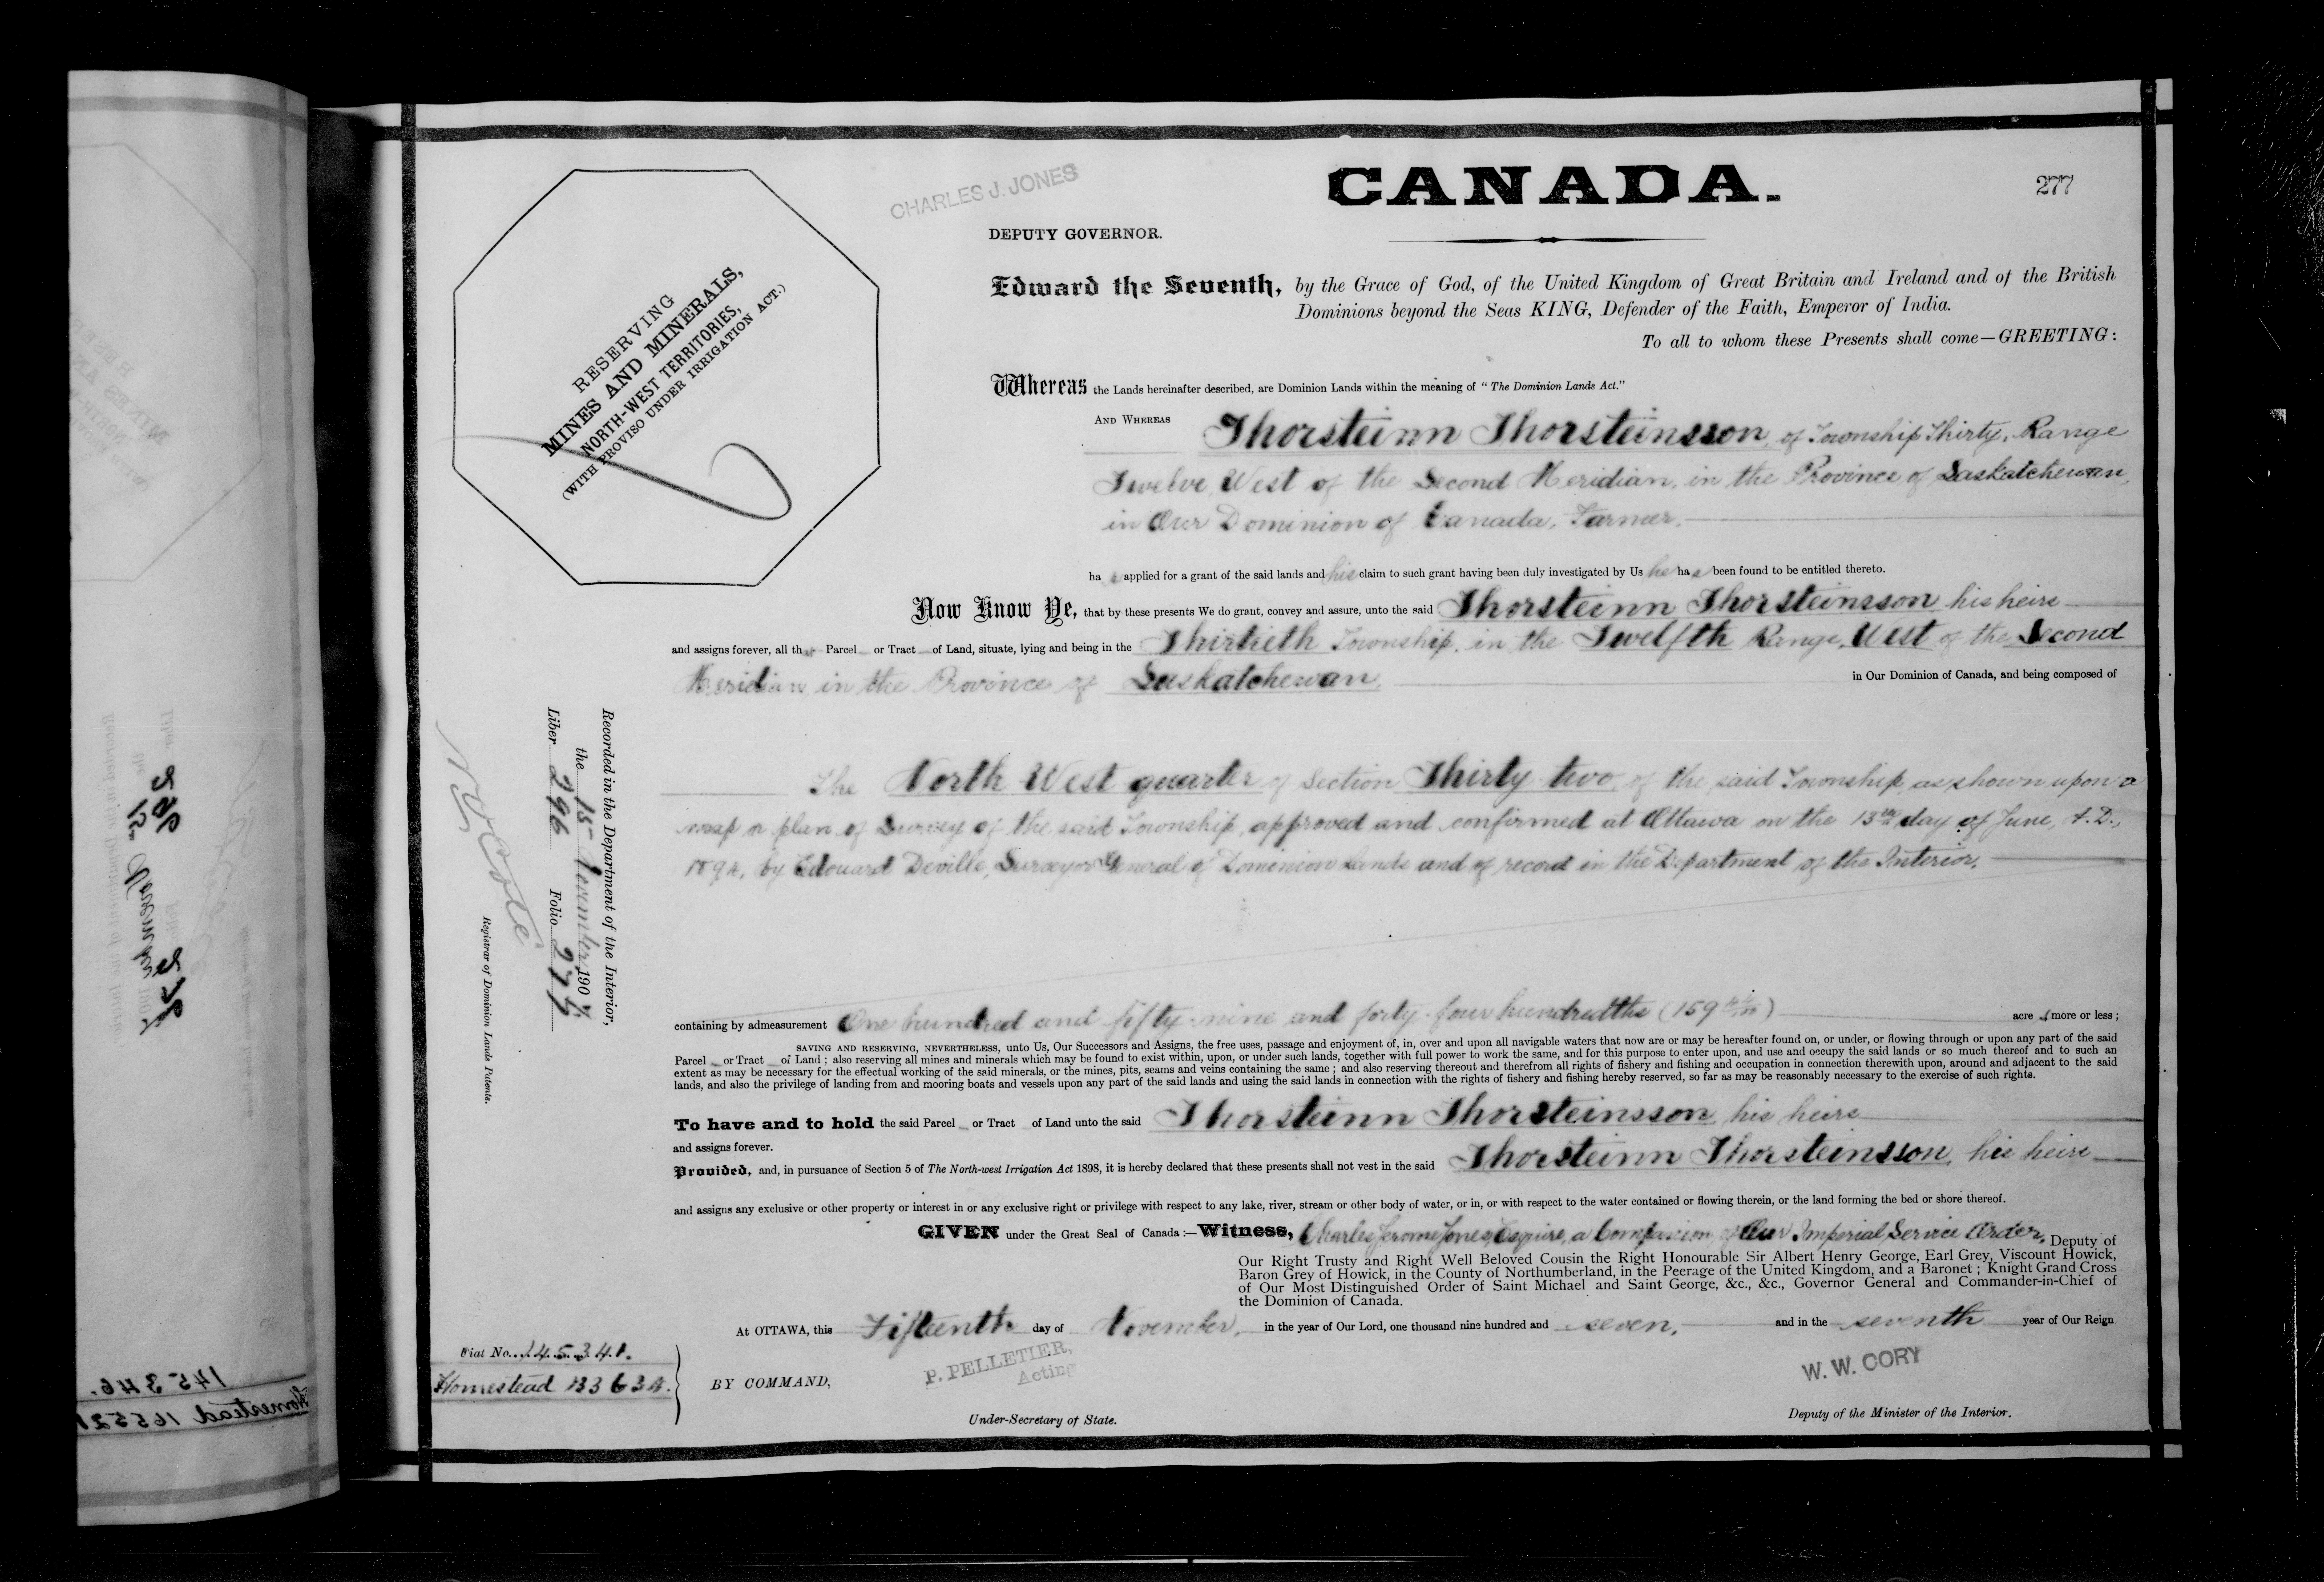 CHARLES J. JONES
CANADA.
277
DEPUTY GOVERNOR.
RESERVING
MINES AND MINERALS,
NORTH-WEST TERRITORIES,
(WITH PROVISO UNDER IRRIGATION ACT.)
Edward the Seventh, by the Grace of God, of the United Kingdom of Great Britain and Ireland and of the British
Dominions beyond the Seas KING, Defender of the Faith, Emperor of India.
To all to whom these Presents shall come—GREETING:
Whereas the Lands hereinafter described, are Dominion Lands within the meaning of "The Dominion Lands Act."
AND WHEREAS Thorsteinn Thorsteinsson, of Township Thirty, Range
Twelve, West of the Second Meridian, in the Province of Saskatchewan,
in Our Dominion of Canada, Farmer.
has applied for a grant of the said lands and his claim to such grant having been duly investigated by Us he has been found to be entitled thereto.
Now Know Ye, that by these presents We do grant, convey and assure, unto the said Thorsteinn Thorsteinsson his heirs
and assigns forever, all that Parcel or Tract of Land, situate, lying and being in the Thirtieth Township, in the Twelfth Range, West of the Second
Meridian in the Province of Saskatchewan, in Our Dominion of Canada, and being composed of
The North West quarter of Section Thirty two, of the said Township, as shown upon a
map or plan of Survey of the said Township, approved and confirmed at Ottawa on the 13th day of June, A.D.,
1894, by Edouard Deville, Surveyor General of Dominion Lands and of record in the Department of the Interior.
Recorded in the Department of the Interior,
the 15 November 1907
Liber 296 Folio 277
N. O. Coté
Registrar of Dominion Lands Patents.
containing by admeasurement One hundred and fifty-nine and forty-four hundredths (159 44/100) acres more or less;
SAVING AND RESERVING, NEVERTHELESS, unto Us, Our Successors and Assigns, the free uses, passage and enjoyment of, in, over and upon all navigable waters that now are or may be hereafter found on, or under, or flowing through or upon any part of the said
Parcel or Tract of Land; also reserving all mines and minerals which may be found to exist within, upon, or under such lands, together with full power to work the same, and for this purpose to enter upon, and use and occupy the said lands or so much thereof and to such an
extent as may be necessary for the effectual working of the said minerals, or the mines, pits, seams and veins containing the same; and also reserving thereout and therefrom all rights of fishery and fishing and occupation in connection therewith upon, around and adjacent to the said
lands, and also the privilege of landing from and mooring boats and vessels upon any part of the said lands and using the said lands in connection with the rights of fishery and fishing hereby reserved, so far as may be reasonably necessary to the exercise of such rights.
To have and to hold the said Parcel or Tract of Land unto the said Thorsteinn Thorsteinsson, his heirs
and assigns forever.
Provided, and, in pursuance of Section 5 of The North-west Irrigation Act 1898, it is hereby declared that these presents shall not vest in the said Thorsteinn Thorsteinsson, his heirs
and assigns any exclusive or other property or interest in or any exclusive right or privilege with respect to any lake, river, stream or other body of water, or in, or with respect to the water contained or flowing therein, or the land forming the bed or shore thereof.
GIVEN under the Great Seal of Canada:—Witness, Charles Jerome Jones, Esquire, a Companion of Our Imperial Service Order, Deputy of
Our Right Trusty and Right Well Beloved Cousin the Right Honourable Sir Albert Henry George, Earl Grey, Viscount Howick,
Baron Grey of Howick, in the County of Northumberland, in the Peerage of the United Kingdom, and a Baronet; Knight Grand Cross
of Our Most Distinguished Order of Saint Michael and Saint George, &c., &c., Governor General and Commander-in-Chief of
the Dominion of Canada.
At OTTAWA, this Fifteenth day of November, in the year of Our Lord, one thousand nine hundred and seven, and in the seventh year of Our Reign
Fiat No. 145341.
Homestead
BY COMMAND,
P. PELLETIER,
Acting
Under-Secretary of State.
W. W. CORY
Deputy of the Minister of the Interior.
145346.
Homestead